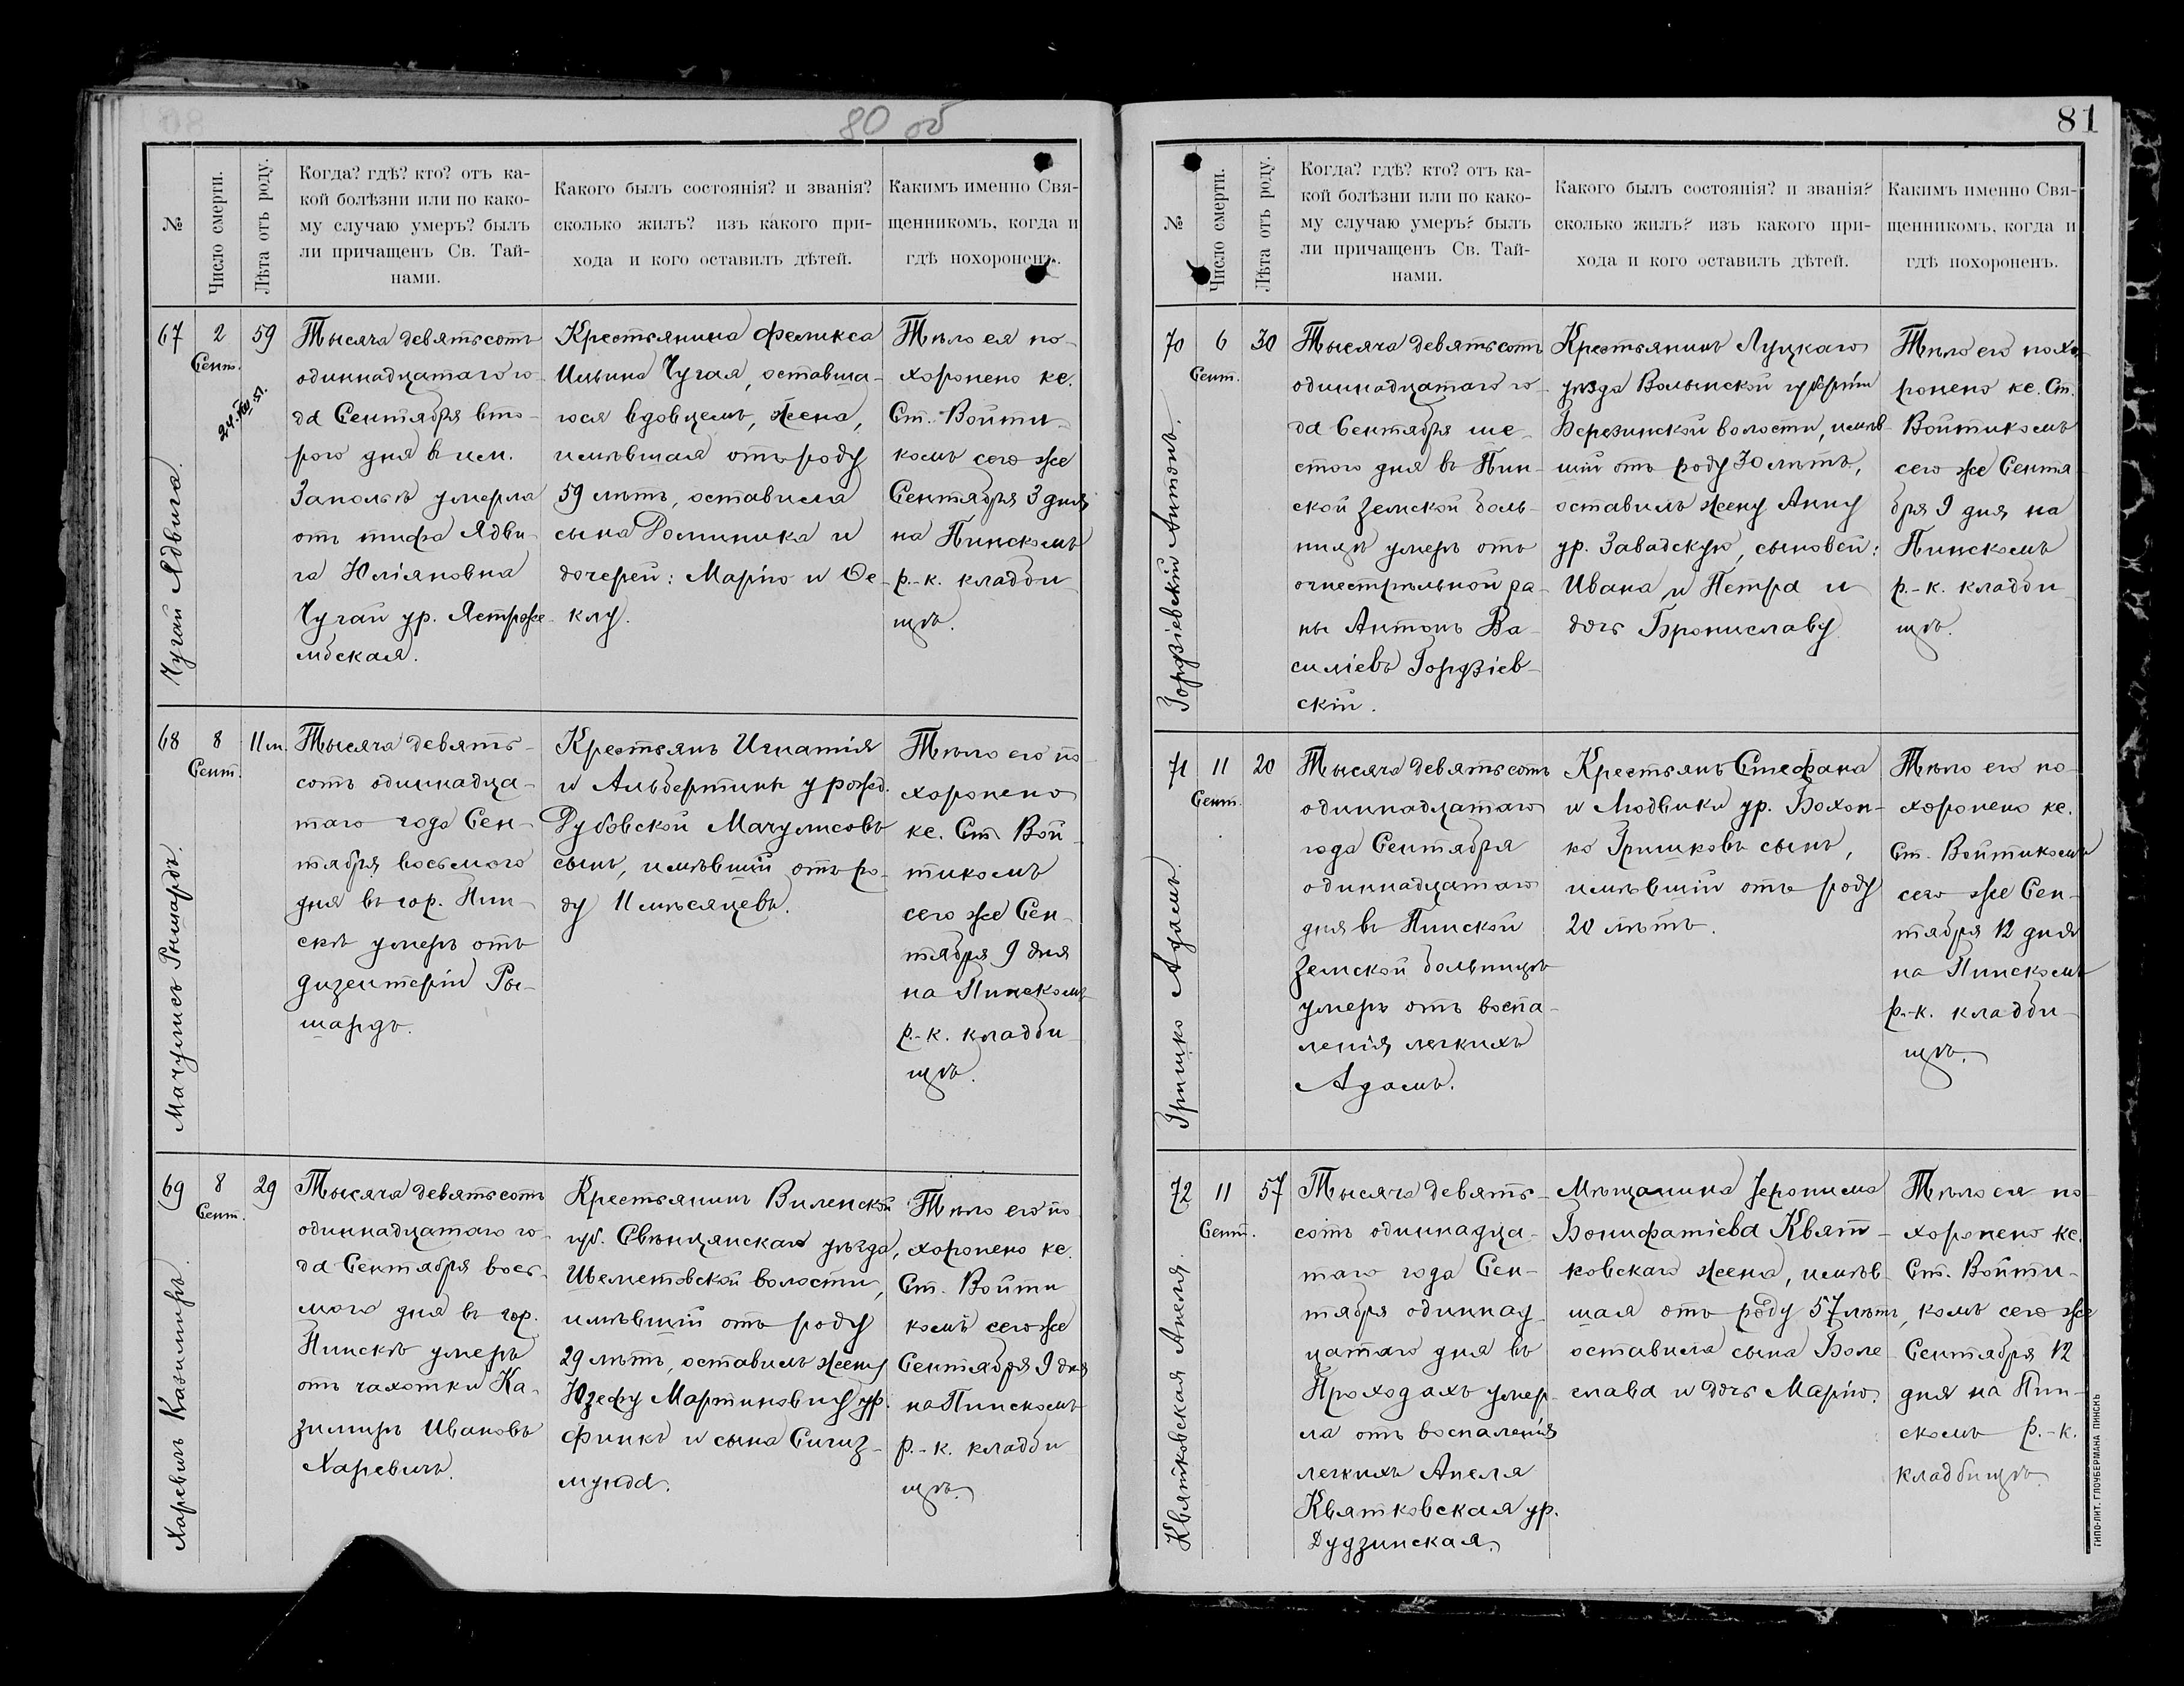 80 об
№
Число смерти.
Лѣта отъ роду.
Когда? гдѣ? кто? отъ ка-
кой болѣзни или по како-
му случаю умеръ? былъ
ли причащенъ Св. Тай-
нами.
Какого былъ состоянія? и званія?
сколько жилъ? изъ какого при-
хода и кого оставилъ дѣтей.
Какимъ именно Свя-
щенникомъ, когда и
гдѣ похороненъ.
67
Чугай Ядвига.
2
Сент.
24.XII 51.
59
Тысяча девятьсотъ
одиннадцатаго го-
да Сентября вто-
рого дня в им.
Заполье умерла
отъ тифа Ядви-
га Юліяновна
Чугай ур. Ястрже-
мбская.
Крестьянина Феликса
Ильина Чугая, оставша-
гося вдовцемъ, жена,
имѣвшая отъ роду
59 лѣтъ, оставила
сына Доминика и
дочерей: Марію и Ѳе-
клу.
Тѣло ея по-
хоронено кс.
Ст. Войти-
комъ сего же
Сентября 3 дня
на Пинскомъ
р.-к. кладби
щѣ.
68
Мачулисъ Рышардъ.
8
Сент.
11 м.
Тысяча девять-
сотъ одиннадца-
таго года Сен-
тября восьмого
дня въ гор. Пин-
скѣ умеръ отъ
дизентеріи Ры-
шардъ.
Крестьянъ Игнатія
и Альбертины урожд.
Дубовской Мачулисовъ
сынъ, имѣвшій отъ ро-
ду 11 мѣсяцевъ.
Тѣло его по-
хоронено
кс. Ст. Вой-
тикомъ
сего же Сен-
тября 9 дня
на Пинскомъ
р.-к. кладби
щѣ.
69
Харевичъ Казимиръ.
8
Сент.
29
Тысяча девятьсотъ
одиннадцатаго го-
да Сентября вось-
мого дня въ гор.
Пинскѣ умеръ
отъ чахотки Ка-
зимиръ Ивановъ
Харевичъ.
Крестьянинъ Виленской
губ. Свѣнцянскаго уѣзда,
Шеметовской волости,
имѣвшій отъ роду
29 лѣтъ, оставилъ жену
Юзефу Мартиновну ур.
Финкъ и сына Сигиз-
мунда.
Тѣло его по
хоронено кс.
Ст. Войти
комъ сего же
Сентября 9 дня
на Пинскомъ
р.-к. кладби
щѣ.
81
№
Число смерти.
Лѣта отъ роду.
Когда? гдѣ? кто? отъ ка-
кой болѣзни или по како-
му случаю умеръ? былъ
ли причащенъ Св. Тай-
нами.
Какого былъ состоянія? и званія?
сколько жилъ? изъ какого при-
хода и кого оставилъ дѣтей.
Какимъ именно Свя-
щенникомъ, когда и
гдѣ похороненъ.
70
Гордзіевскій Антонъ.
6
Сент.
30
Тысяча девятьсотъ
одиннадцатаго го-
да Сентября ше-
стого дня въ Пин-
ской земской боль-
ницѣ умеръ отъ
огнестрѣльной ра-
ны Антонъ Ва-
силіевъ Гордзіев-
скій.
Крестьянинъ Луцкаго
уѣзда Волынской губерніи
Березинской волости, имѣв-
шій отъ роду 30 лѣтъ,
оставилъ жену Анну
ур. Завадскую, сыновей:
Ивана и Петра и
дочь Брониславу
Тѣло его похо-
ронено кс. Ст.
Войтикомъ
сего же Сентя-
бря 9 дня на
Пинскомъ
р.-к. кладби
щѣ.
71
Гришко Адамъ.
11
Сент.
20
Тысяча девятьсотъ
одиннадцатаго
года Сентября
одиннадцатаго
дня въ Пинской
земской больницѣ
умеръ отъ воспа-
ленія легкихъ
Адамъ.
Крестьянъ Стефана
и Людвики ур. Бохон-
ко Гришковъ сынъ,
имѣвшій отъ роду
20 лѣтъ.
Тѣло его по-
хоронено кс.
Ст. Войтикомъ
сего же Сен-
тября 12 дня
на Пинскомъ
р.-к. кладби-
щѣ.
72
Квятковская Анеля.
11
Сент.
57
Тысяча девять-
сотъ одиннадца-
таго года Сен-
тября одиннад-
цатаго дня въ
Проходахъ умер-
ла отъ воспаленія
легкихъ Анеля
Квятковская ур.
Дудзинская.
Мѣщанина Іеронима
Бонифатіева Квят-
ковскаго жена, имѣв-
шая отъ роду 57 лѣтъ,
оставила сына Боле-
слава и дочь Марію.
Тѣло ея по-
хоронено кс.
Ст. Войти-
комъ сего же
Сентября 12
дня на Пин-
скомъ р.-к.
кладбищѣ.
ТИПО-ЛИТ. ГЛОУБЕРМАНА ПИНСКЪ